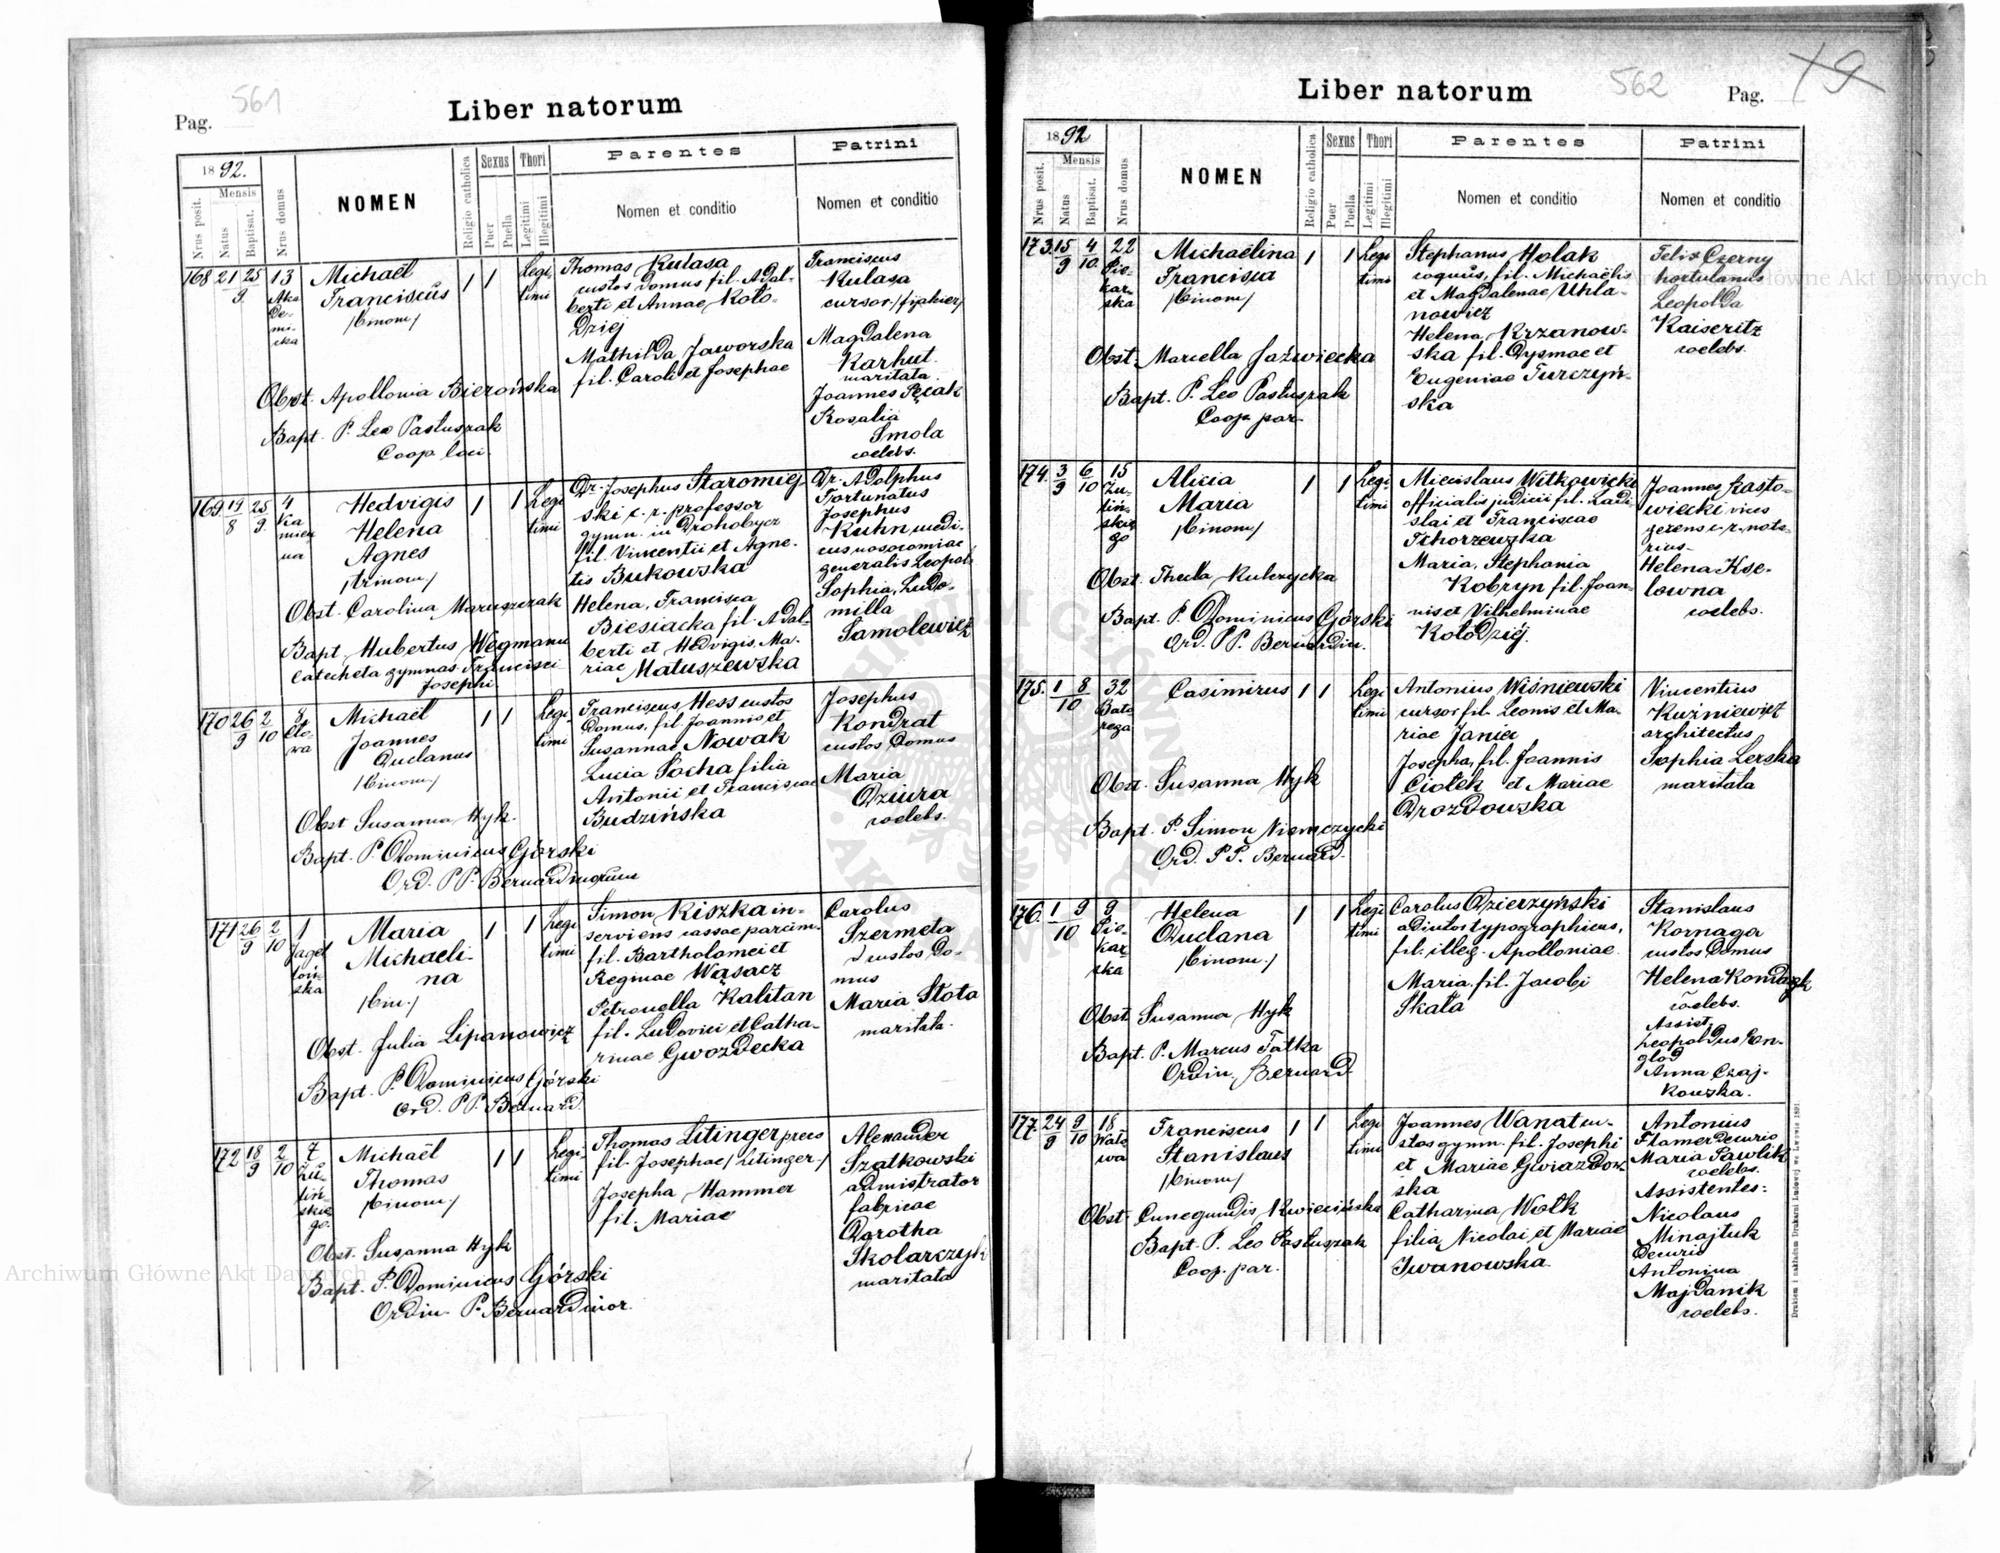 561
Liber natorum
Pag.
1892.
Mensis
Nrus posit.
Natus
Baptisat.
Nrus domus
NOMEN
Religio catholica
Sexus
Puer
Puella
Thori
Legitimi
Illegitimi
Parentes
Nomen et conditio
Patrini
Nomen et conditio
168 21/9 25 13 Akademicka
Michaël
Franciscus
/binom/
1 1 Legitimi
Thomas Kulasa
custos domus fil. Adal-
berti et Annae Koło-
dziej
Mathilda Jaworska
fil. Caroli et Josephae
Franciscus
Kulasa
cursor /fijakier/
Magdalena
Karhut.
maritata
Joannes Pęcak
Rosalia
Smola
coelebs.
Obst. Apollonia Bierońska
Bapt. P. Leo Pastuszak
Coop. loci.
169 19/8 25/9 4
Hedvigis
Helena
Agnes
/trinom/
1 1 Legitimi
Dr. Josephus Staromiej-
ski c. r. professor
gymn. in Drohobycz
fil. Vincentii et Agne-
tis Bukowska
Helena, Francisca
Biesiacka fil. Adal-
berti et Hedvigis, Ma-
riae Matuszewska
Dr. Adolphus
Fortunatus
Josephus
Kuhn medi-
cus nosocomiae
generalis Leopol.
Sophia, Ludo-
milla
Samolewicz
Obst. Carolina Maruszczak
Bapt. Hubertus Wegmann
Catecheta gymnas. Francisci
Josephi
170 26/9 2/10 8
Michaël
Joannes
Duclanus
/binom/
1 1 Legitimi
Franciscus Hess custos
domus, fil. Joannis et
Susannae Nowak
Lucia Socha filia
Antonii et Franciscae
Budzińska
Josephus
Kondrat
custos domus
Maria
Dziura
coelebs.
Obst. Susanna Hyk.
Bapt. P. Dominicus Górski
Ord. PP. Bernardinorum
171 26/9 2/10 1 Jagellońska
Maria
Michaeli-
na
/bin/
1 1 Legitimi
Simon Kiszka in-
serviens cassae parcim.
fil. Bartholomei et
Reginae Wąsacz
Petronella Kalitan
fil. Ludovici et Catha-
rinae Gwozdecka
Carolus
Szermeta
custos do-
mus
Maria Stota
maritata.
Obst. Julia Lipanowicz
Bapt. P. Dominicus Górski
Ord. PP. Bernard.
172 18/9 2/10 7 Zulińskiego
Michaël
Thomas
/binom/
1 1 Legitimi
Thomas Litinger
fil. Josephae /Litinger/
Josepha Hammer
fil. Mariae
Alexander
Szatkowski
admistrator
fabricae
Dorotha
Skolarczyk
maritata
Obst. Susanna Hyk
Bapt. P. Dominicus Górski
Ordin. P. Bernardinor.
562
Liber natorum
Pag.
1892
Mensis
Nrus posit.
Natus
Baptisat.
Nrus domus
NOMEN
Religio catholica
Sexus
Puer
Puella
Thori
Legitimi
Illegitimi
Parentes
Nomen et conditio
Patrini
Nomen et conditio
173. 15/9 4/10 22 Piekarska
Michaëlina
Francisca
/binom/
1 1 Legitimi
Stephanus Holak
coquus, fil. Michaëlis
et Magdalenae Uhla-
nowicz
Helena Krzanow-
ska fil. Dysmae et
Eugeniae Turczyń-
ska
Felix Czerny
hortulanus
Leopolda
Kaiseritz
coelebs.
Obst. Marcella Jaźwiecka
Bapt. P. Leo Pastuszak
Coop. par.
174. 3/9 6/10 15 Zulińskiego
Alicia
Maria
/binom/
1 1 Legitimi
Miecislaus Witkowicki
officialis judicii fil. Ladi-
slai et Franciscae
Tchorzewska
Maria, Stephania
Kobryn fil. Joan-
nis et Vilhelminae
Kołodziej.
Joannes Kasto-
wiecki vices
gerens c. r. nota-
rius.
Helena Kse-
lowna
coelebs.
Obst. Thecla Kulczycka
Bapt. P. Dominicus Górski
Ord. PP. Bernardin.
175. 1/10 8 32 Batorego
Casimirus
1 1 Legitimi
Antonius Wiśniewski
cursor fil. Leonis et Ma-
riae Janicz
Josepha, fil. Joannis
Ciołek et Mariae
Drozdowska
Vincentius
Kuźniewicz
architectus
Sophia Lerska
maritata
Obst. Susanna Hyk
Bapt. P. Simon Niemczycki
Ord. PP. Bernard.
176. 1/10 9 9 Piekarska
Helena
Duclana
/binom./
1 1 Legitimi
Carolus Dzierzyński
adiutor typographicus,
fil. illeg. Apolloniae
Maria fil. Jacobi
Skała
Stanislaus
Kornaga
custos domus
Helena
coelebs.
Assist.
Leopoldus En-
glod
Anna Czaj-
kowska.
Obst. Susanna Hyk
Bapt. P. Marcus Fatka
Ordin. Bernard.
177. 24/9 9/10 18 Wałowa
Franciscus
Stanislaus
/binom/
1 1 Legitimi
Joannes Wanat cu-
stos gymn. fil. Josephi
et Mariae Gwiazdow-
ska
Catharina Wołk
filia Nicolai et Mariae
Iwanowska.
Antonius
Flamer decurio
Maria Pawlik
coelebs.
Assistentes:
Nicolaus
Minajtuk
decurio
Antonina
Majdanik
coelebs.
Obst. Cunegundis Kwiecińska
Bapt. P. Leo Pastuszak
Coop. par.
Drukiem i nakładem Drukarni Ludowej we Lwowie 1891.
Archiwum Główne Akt Dawnych
Główne Akt Dawnych